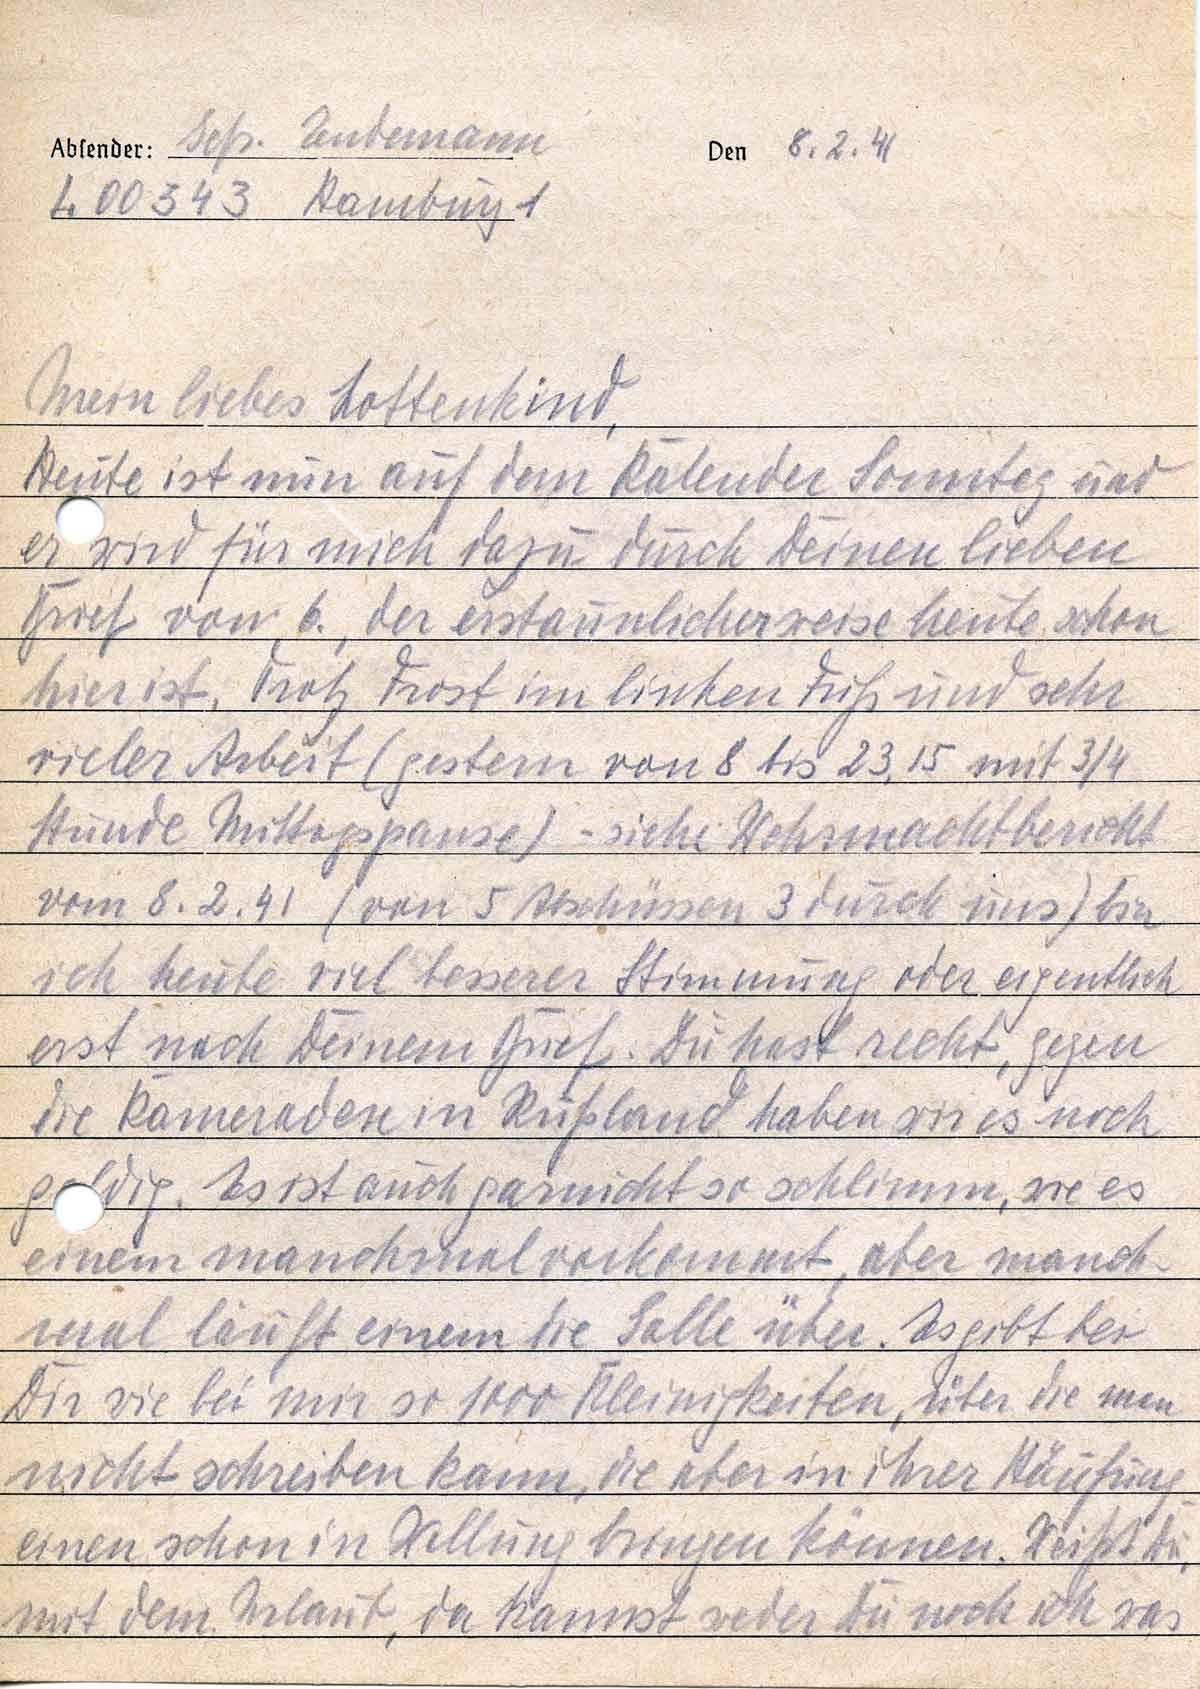 Absender: Gefr. Endemann Den 8.2.41
L 00343 Hamburg 1
Mein liebes Lottenkind,
Heute ist nun auf dem Kalender Sonntag und
er wird für mich dazu durch Deinen lieben
Brief vom 6., der erstaunlicherweise heute schon
hier ist. Trotz Frost im linken Fuß und sehr
vieler Arbeit (gestern von 8 bis 23,15 mit 3/4
Stunde Mittagspause) - siehe Wehrmachtbericht
vom 8.2.41 (von 5 Abschüssen 3 durch uns) bin
ich heute viel besserer Stimmung oder eigentlich
erst nach Deinem Brief. Du hast recht, gegen
die Kameraden in Rußland haben wir es noch
goldig. Es ist auch garnicht so schlimm, wie es
einem manchmal vorkommt, aber manch-
mal läuft einem die Galle über. Es gibt bei
Dir wie bei mir so 1000 Kleinigkeiten, über die man
nicht schreiben kann, die aber in ihrer Häufung
einen schon in Wallung bringen können. Weißt Du,
mit dem Urlaub, da kannst weder Du noch ich was